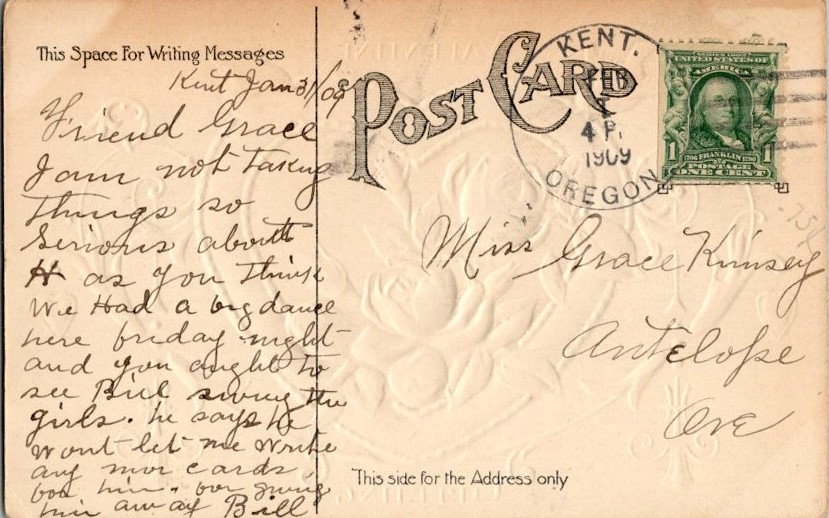 This Space For Writing Messages
Kent Jan 31/09
Friend Grace
I am not taking
things so
Serious about
H as you think
We Had a big dance
here friday night
and you ought to
see Bill swing the
girls. he says he
wont let me write
any mor cards
him.
him away Bill
POST CARD
KENT.
FEB
1
4 P.
1909
OREGON
SERIES 1902
UNITED STATES OF
AMERICA
1 1706 FRANKLIN 1790 1
POSTAGE
ONE CENT
Miss Grace Kinsey
Antelope
Ore
This side for the Address only